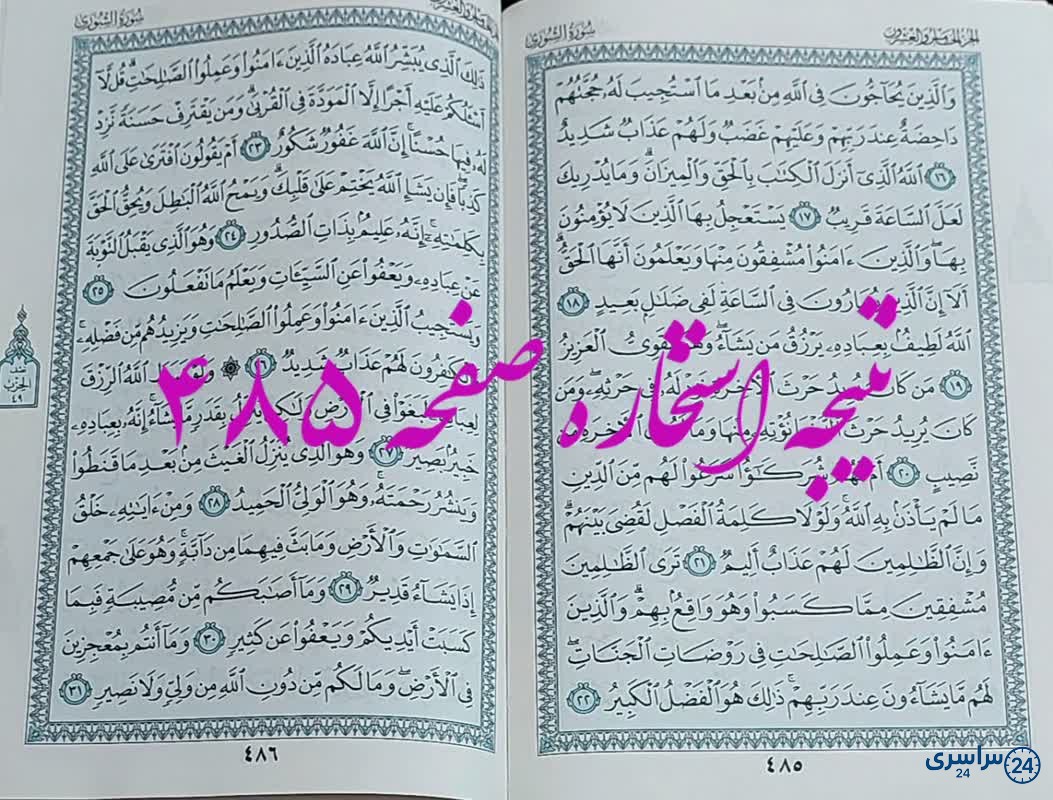 سُورَةُ الشُّورَىٰ
وَالَّذِينَ يُحَاجُّونَ فِي اللَّهِ مِنْ بَعْدِ مَا اسْتُجِيبَ لَهُ حُجَّتُهُمْ
دَاحِضَةٌ عِندَ رَبِّهِمْ وَعَلَيْهِمْ غَضَبٌ وَلَهُمْ عَذَابٌ شَدِيدٌ
١٦ اللَّهُ الَّذِي أَنزَلَ الْكِتَٰبَ بِالْحَقِّ وَالْمِيزَانَ ۗ وَمَا يُدْرِيكَ
لَعَلَّ السَّاعَةَ قَرِيبٌ ١٧ يَسْتَعْجِلُ بِهَا الَّذِينَ لَا يُؤْمِنُونَ
بِهَا ۖ وَالَّذِينَ ءَامَنُوا مُشْفِقُونَ مِنْهَا وَيَعْلَمُونَ أَنَّهَا الْحَقُّ ۗ
أَلَا إِنَّ الَّذِينَ يُمَارُونَ فِي السَّاعَةِ لَفِي ضَلَٰلٍ بَعِيدٍ ١٨
اللَّهُ لَطِيفٌ بِعِبَادِهِ يَرْزُقُ مَن يَشَاءُ ۖ وَهُوَ الْقَوِيُّ الْعَزِيزُ
١٩ مَن كَانَ يُرِيدُ حَرْثَ الْآخِرَةِ نَزِدْ لَهُ فِي حَرْثِهِ ۖ وَمَن
كَانَ يُرِيدُ حَرْثَ الدُّنْيَا نُؤْتِهِ مِنْهَا وَمَا لَهُ فِي الْآخِرَةِ مِن
نَّصِيبٍ ٢٠ أَمْ لَهُمْ شُرَكَٰؤُا شَرَعُوا لَهُم مِّنَ الدِّينِ
مَا لَمْ يَأْذَن بِهِ اللَّهُ ۚ وَلَوْلَا كَلِمَةُ الْفَصْلِ لَقُضِيَ بَيْنَهُمْ ۗ
وَإِنَّ الظَّٰلِمِينَ لَهُمْ عَذَابٌ أَلِيمٌ ٢١ تَرَى الظَّٰلِمِينَ
مُشْفِقِينَ مِمَّا كَسَبُوا وَهُوَ وَاقِعٌ بِهِمْ ۗ وَالَّذِينَ
ءَامَنُوا وَعَمِلُوا الصَّٰلِحَٰتِ فِي رَوْضَاتِ الْجَنَّاتِ ۖ
لَهُم مَّا يَشَاءُونَ عِندَ رَبِّهِمْ ۚ ذَٰلِكَ هُوَ الْفَضْلُ الْكَبِيرُ ٢٢
٤٨٥
سُورَةُ الشُّورَىٰ
ذَٰلِكَ الَّذِي يُبَشِّرُ اللَّهُ عِبَادَهُ الَّذِينَ ءَامَنُوا وَعَمِلُوا الصَّٰلِحَٰتِ ۗ قُل لَّا
أَسْـَٔلُكُمْ عَلَيْهِ أَجْرًا إِلَّا الْمَوَدَّةَ فِي الْقُرْبَىٰ ۗ وَمَن يَقْتَرِفْ حَسَنَةً نَّزِدْ
لَهُ فِيهَا حُسْنًا ۚ إِنَّ اللَّهَ غَفُورٌ شَكُورٌ ٢٣ أَمْ يَقُولُونَ افْتَرَىٰ عَلَى اللَّهِ
كَذِبًا ۖ فَإِن يَشَإِ اللَّهُ يَخْتِمْ عَلَىٰ قَلْبِكَ ۗ وَيَمْحُ اللَّهُ الْبَٰطِلَ وَيُحِقُّ الْحَقَّ
بِكَلِمَٰتِهِ ۚ إِنَّهُ عَلِيمٌ بِذَاتِ الصُّدُورِ ٢٤ وَهُوَ الَّذِي يَقْبَلُ التَّوْبَةَ
عَنْ عِبَادِهِ وَيَعْفُوا عَنِ السَّيِّـَٔاتِ وَيَعْلَمُ مَا تَفْعَلُونَ ٢٥
وَيَسْتَجِيبُ الَّذِينَ ءَامَنُوا وَعَمِلُوا الصَّٰلِحَٰتِ وَيَزِيدُهُم مِّن فَضْلِهِ ۚ
وَالْكَٰفِرُونَ لَهُمْ عَذَابٌ شَدِيدٌ ٢٦ ۞ وَلَوْ بَسَطَ اللَّهُ الرِّزْقَ
لِعِبَادِهِ لَبَغَوْا فِي الْأَرْضِ وَلَٰكِن يُنَزِّلُ بِقَدَرٍ مَّا يَشَاءُ ۚ إِنَّهُ بِعِبَادِهِ
خَبِيرٌ بَصِيرٌ ٢٧ وَهُوَ الَّذِي يُنَزِّلُ الْغَيْثَ مِن بَعْدِ مَا قَنَطُوا
وَيَنشُرُ رَحْمَتَهُ ۚ وَهُوَ الْوَلِيُّ الْحَمِيدُ ٢٨ وَمِنْ ءَايَٰتِهِ خَلْقُ
السَّمَٰوَٰتِ وَالْأَرْضِ وَمَا بَثَّ فِيهِمَا مِن دَابَّةٍ ۚ وَهُوَ عَلَىٰ جَمْعِهِمْ
إِذَا يَشَاءُ قَدِيرٌ ٢٩ وَمَا أَصَٰبَكُم مِّن مُّصِيبَةٍ فَبِمَا
كَسَبَتْ أَيْدِيكُمْ وَيَعْفُوا عَن كَثِيرٍ ٣٠ وَمَا أَنتُم بِمُعْجِزِينَ
فِي الْأَرْضِ ۖ وَمَا لَكُم مِّن دُونِ اللَّهِ مِن وَلِيٍّ وَلَا نَصِيرٍ ٣١
٤٨٦
الحزب
٤٩
نتیجه استخاره صفحه ۴۸۵
سراسری 24
24